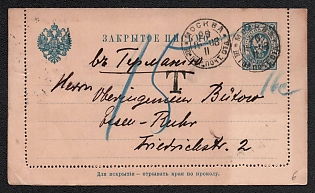 ЗАКРЫТОЕ ПИСЬМО
МОСКВА
въ Германію
T
15
Herrn
Oberingenieur Bütow
Essen-Ruhr
Friedrichstr. 2
Для вскрытія — отрывать края по проколу.
6